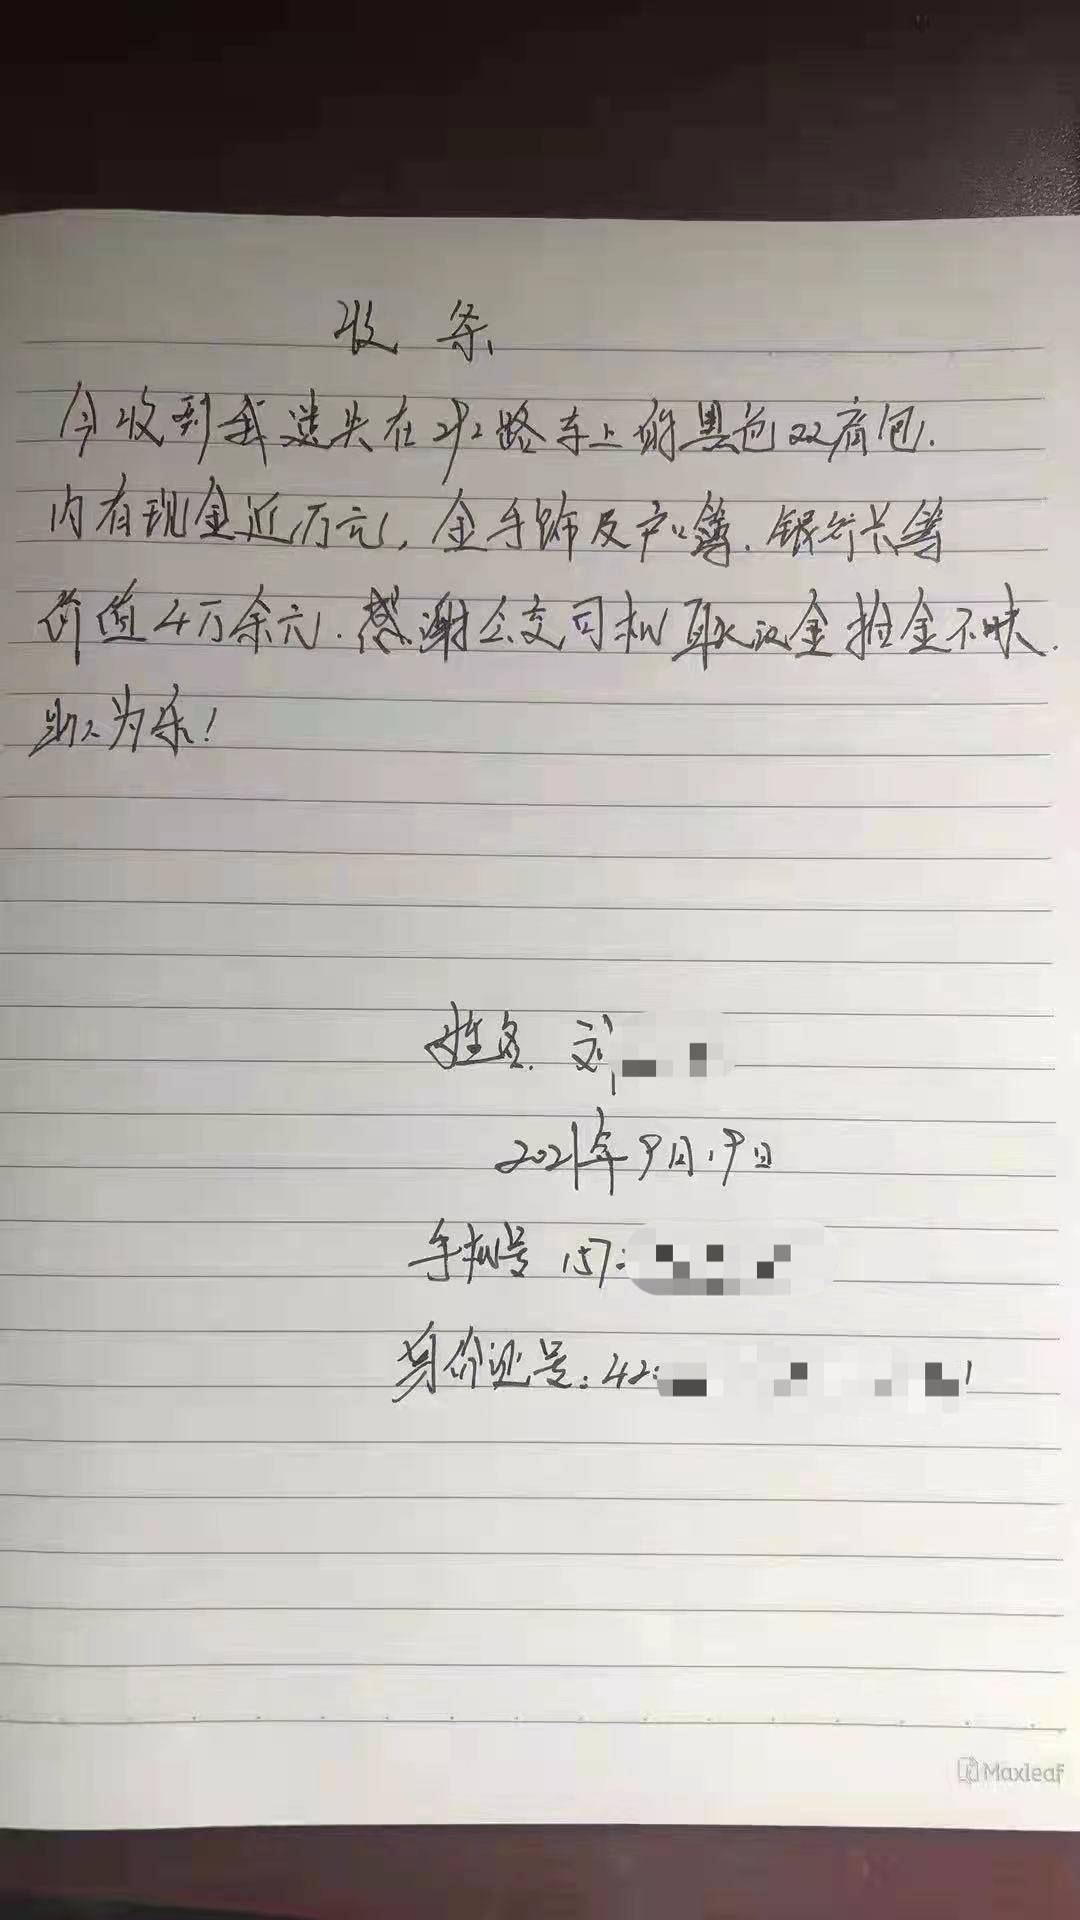 收条
今收到我遗失在212路车上的黑色双肩包.
内有现金近万元,金手饰及户口簿.银行卡等
价值4万余元.感谢公交司机耿汉金拾金不昧.
助人为乐!
姓名. 刘
2021年9月19日
手机号 157
身价证号:42
Maxleaf